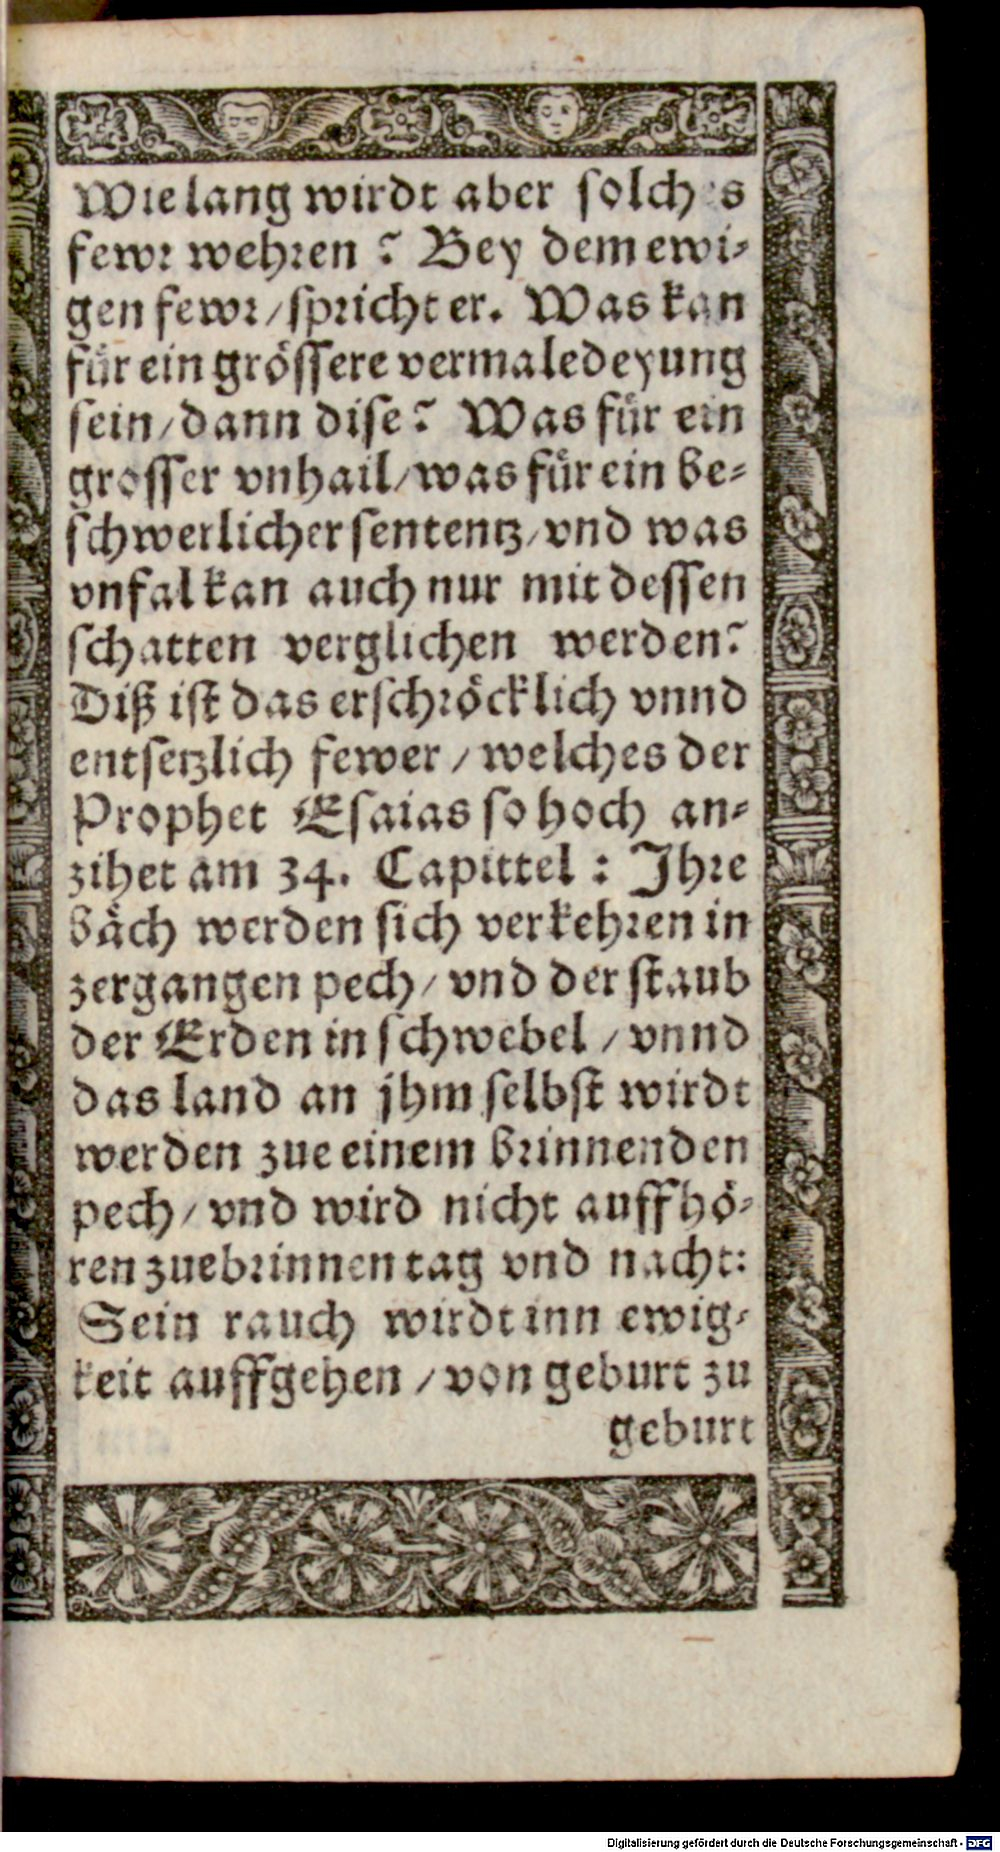 Wie lang wirdt aber solches
fewr wehren? Bey dem ewi-
gen fewr/ spricht er. Was kan
für ein grössere vermaledeyung
sein/ dann dise? Was für ein
grosser vnhail/ was für ein be-
schwerlicher sententz/ vnd was
vnfal kan auch nur mit dessen
schatten verglichen werden?
Diß ist das erschröcklich vnnd
entsetzlich fewer/ welches der
Prophet Esaias so hoch an-
zihet am 34. Capittel: Ihre
bäch werden sich verkehren in
zergangen pech/ vnd der staub
der Erden in schwebel/ vnnd
das land an jhm selbst wirdt
werden zue einem brinnenden
pech/ vnd wird nicht auffhö-
ren zue brinnen tag vnd nacht:
Sein rauch wirdt inn ewig-
keit auffgehen/ von geburt zu
geburt
Digitalisierung gefördert durch die Deutsche Forschungsgemeinschaft - DFG